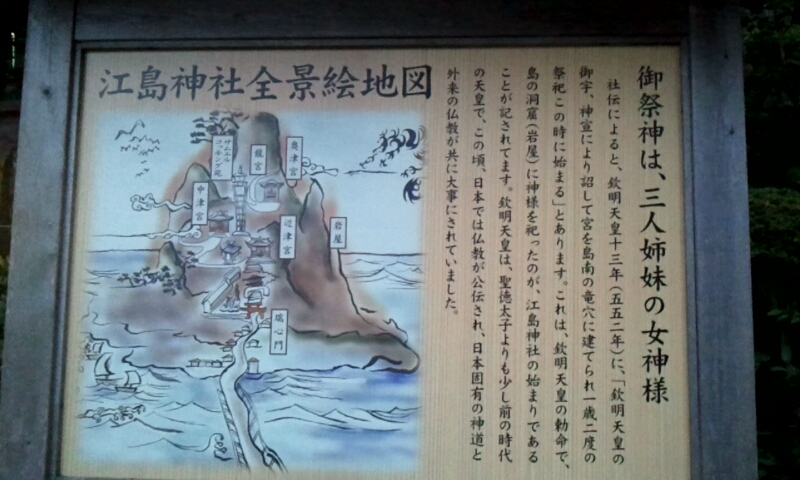 御祭神は、三人姉妹の女神様
社伝によると、欽明天皇十三年（五五二年）に、「欽明天皇の
御宇、神宣により詔して宮を島南の竜穴に建てられ一歳二度の
祭祀この時に始まる」とあります。これは、欽明天皇の勅命で、
島の洞窟（岩屋）に神様を祀ったのが、江島神社の始まりである
ことが記されてます。欽明天皇は、聖徳太子よりも少し前の時代
の天皇で、この頃、日本では仏教が公伝され、日本固有の神道と
外来の仏教が共に大事にされていました。
江島神社全景絵地図
奥津宮
龍宮
サムエル
コッキング苑
中津宮
辺津宮
岩屋
瑞心門